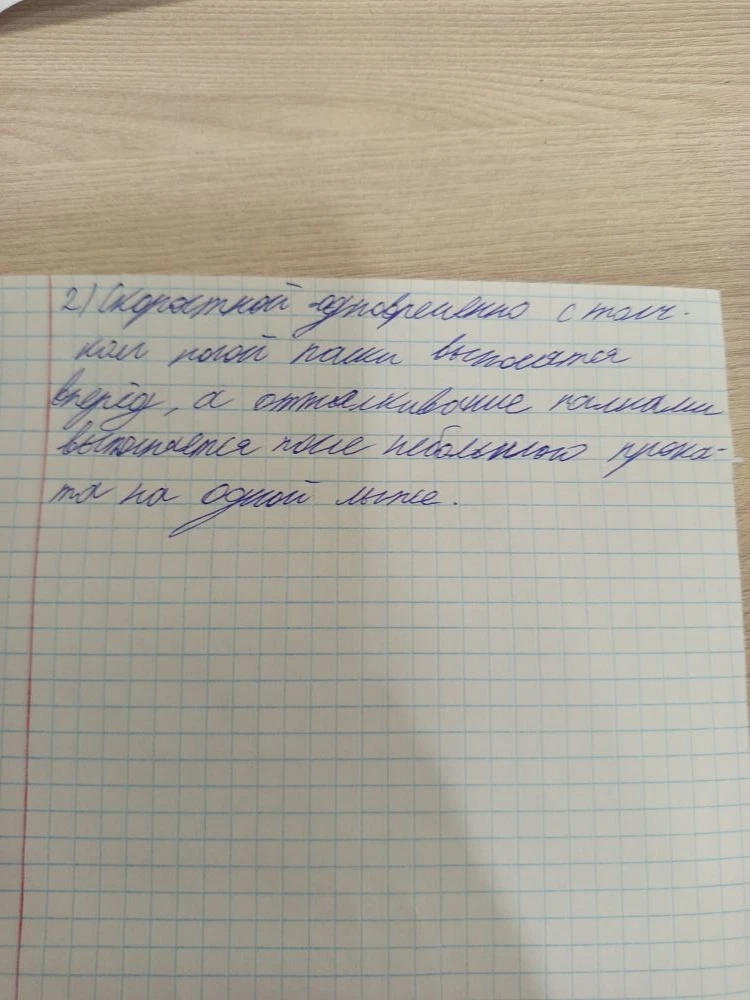 2) Скоростной - одновременно с толч-
ком ногой палки выносятся
вперёд, а отталкивание палками
выполняется после небольшого прока-
та на одной лыже.